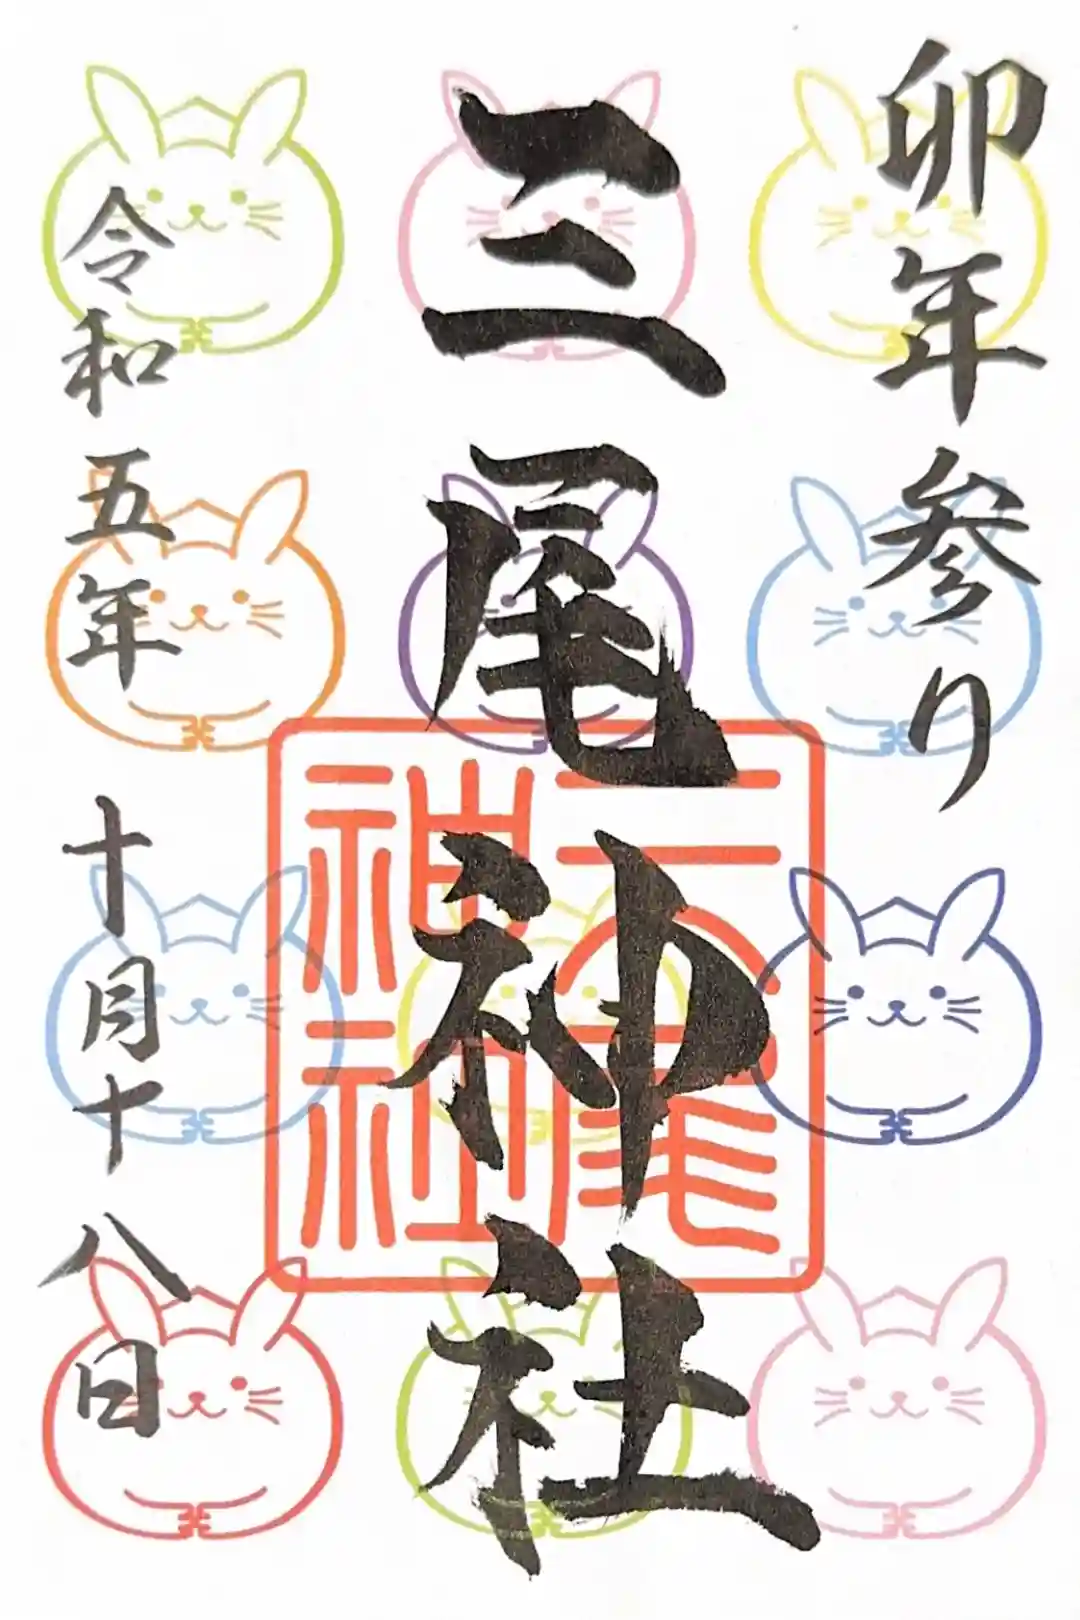 卯年参り
三尾神社
三尾神社
令和五年 十月十八日